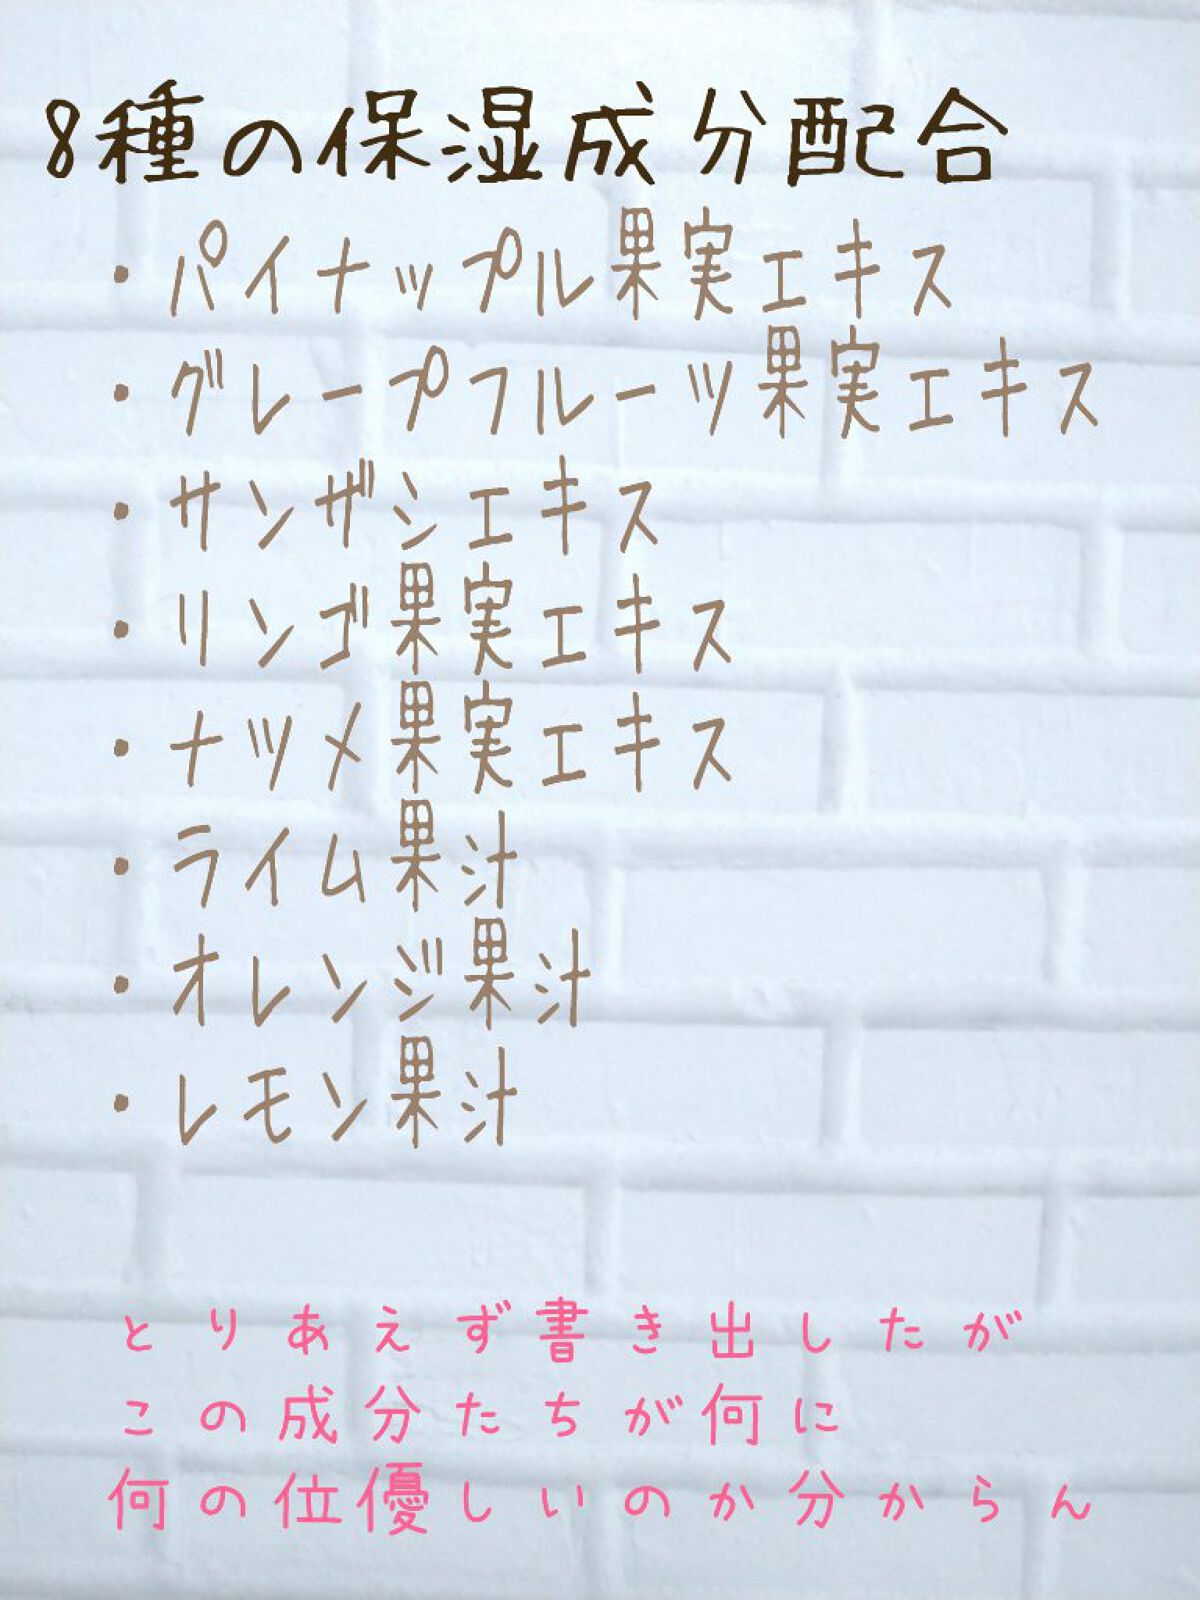 8種の保湿成分配合
・パイナップル果実エキス
・グレープフルーツ果実エキス
・サンザシエキス
・リンゴ果実エキス
・ナツメ果実エキス
・ライム果汁
・オレンジ果汁
・レモン果汁
とりあえず書き出したが
この成分たちが何に
何の位優しいのか分からん